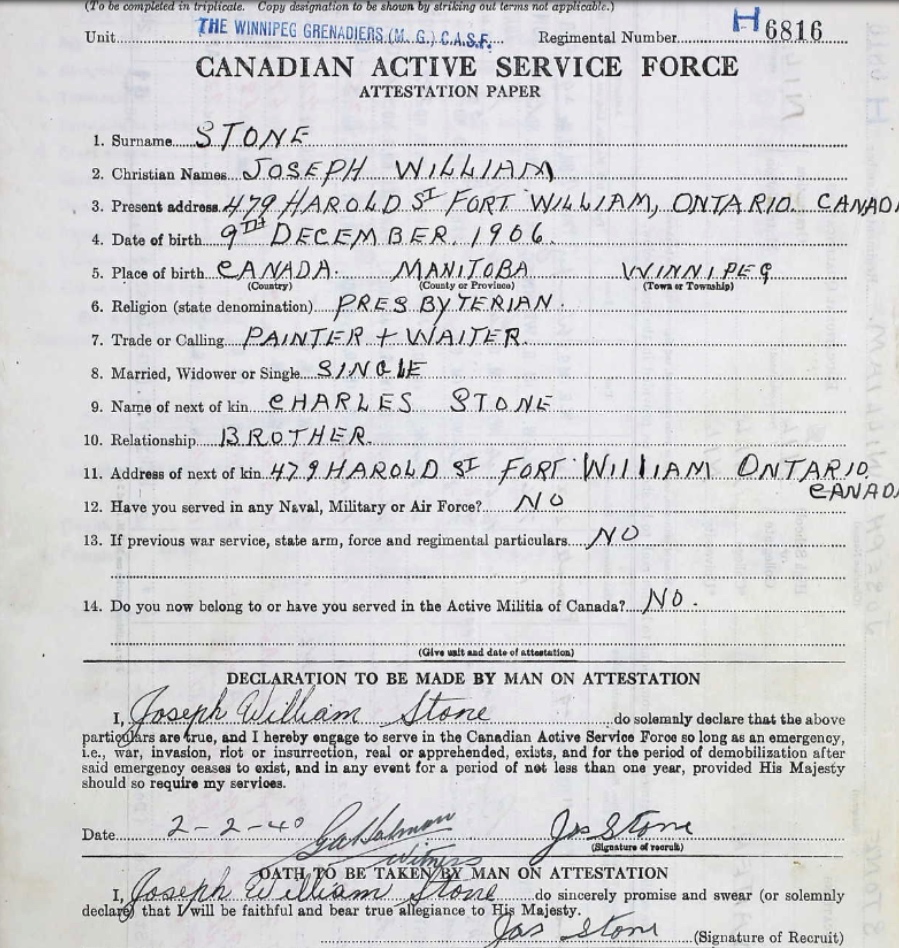 (To be completed in triplicate. Copy designation to be shown by striking out terms not applicable.)
Unit THE WINNIPEG GRENADIERS (M. G.) C.A.S.F. Regimental Number H 6816
CANADIAN ACTIVE SERVICE FORCE
ATTESTATION PAPER
1. Surname STONE
2. Christian Names JOSEPH WILLIAM
3. Present address 479 HAROLD ST FORT WILLIAM, ONTARIO. CANADA
4. Date of birth 9TH DECEMBER. 1906.
5. Place of birth CANADA. MANITOBA WINNIPEG
(Country) (County or Province) (Town or Township)
6. Religion (state denomination) PRESBYTERIAN.
7. Trade or Calling PAINTER + WAITER.
8. Married, Widower or Single SINGLE
9. Name of next of kin CHARLES STONE
10. Relationship BROTHER.
11. Address of next of kin 479 HAROLD ST FORT WILLIAM ONTARIO,
CANADA
12. Have you served in any Naval, Military or Air Force? NO
13. If previous war service, state arm, force and regimental particulars NO
14. Do you now belong to or have you served in the Active Militia of Canada? NO.
(Give unit and date of attestation)
DECLARATION TO BE MADE BY MAN ON ATTESTATION
I, Joseph William Stone do solemnly declare that the above
particulars are true, and I hereby engage to serve in the Canadian Active Service Force so long as an emergency,
i.e., war, invasion, riot or insurrection, real or apprehended, exists, and for the period of demobilization after
said emergency ceases to exist, and in any event for a period of not less than one year, provided His Majesty
should so require my services.
Date 2-2-40 Jos Stone
Witness (Signature of recruit)
OATH TO BE TAKEN BY MAN ON ATTESTATION
I, Joseph William Stone do sincerely promise and swear (or solemnly
declare) that I will be faithful and bear true allegiance to His Majesty.
Jos Stone (Signature of Recruit)